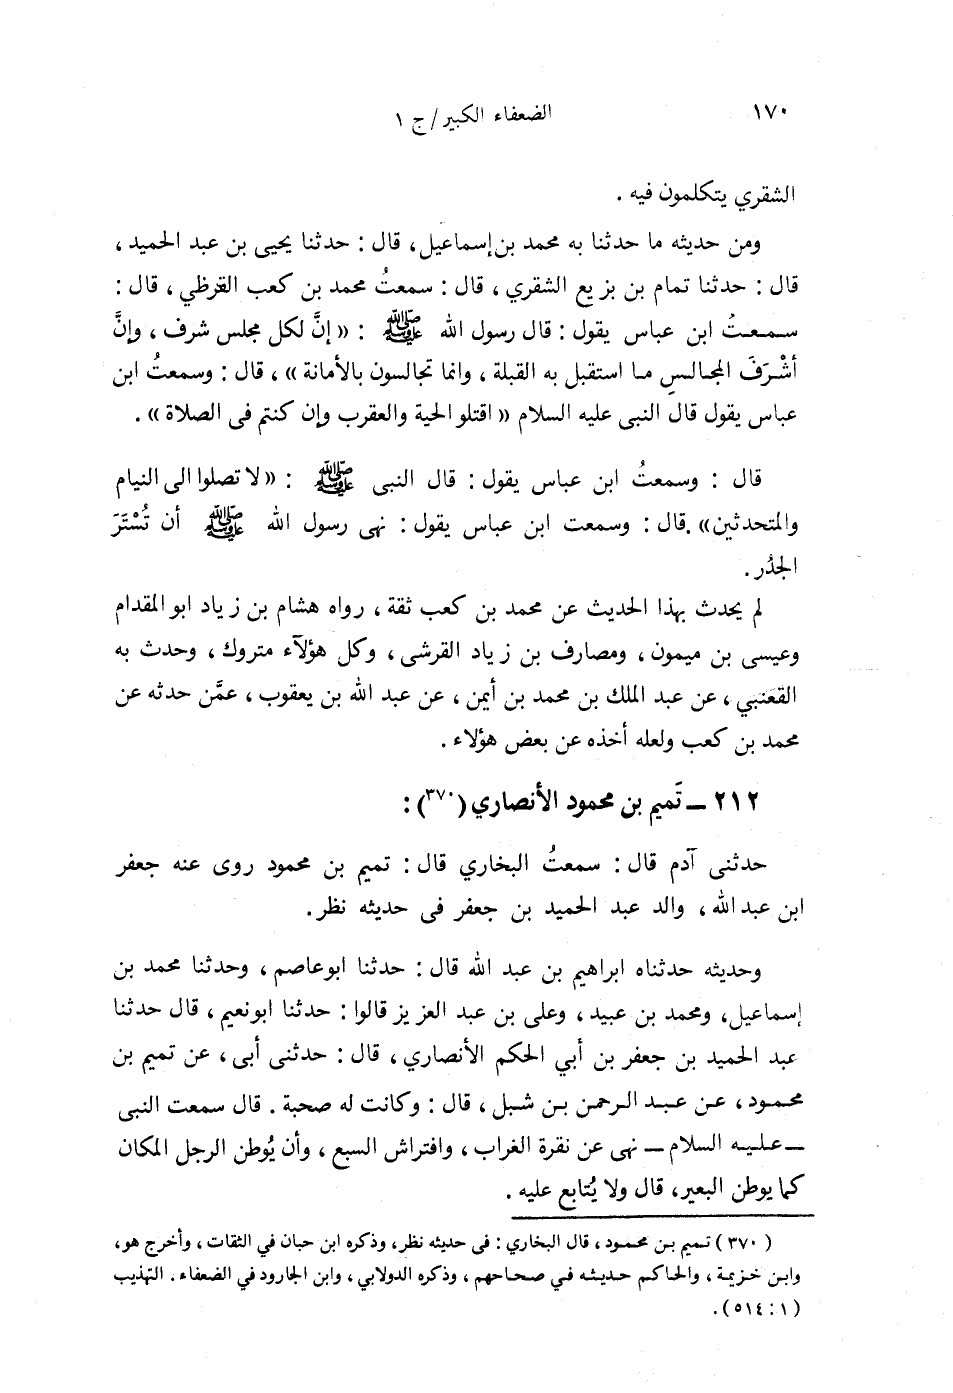 ١٧٠
الضعفاء الكبير / ج ١
الشقري يتكلمون فيه .
ومن حديثه ما حدثنا به محمد بن إسماعيل، قال : حدثنا يحيى بن عبد الحميد ،
قال : حدثنا تمام بن بزيع الشقري ، قال : سمعتُ محمد بن كعب القرظي ، قال :
سمعتُ ابن عباس يقول : قال رسول الله ﷺ : « إنَّ لكل مجلس شرف ، وإنَّ
أشْرَفَ المجالسِ ما استقبل به القبلة ، وانما تجالسون بالأمانة » ، قال : وسمعتُ ابن
عباس يقول قال النبى عليه السلام « اقتلو الحية والعقرب وإن كنتم فى الصلاة » .
قال : وسمعتُ ابن عباس يقول : قال النبى ﷺ : « لا تصلوا الى النيام
والمتحدثين» .قال : وسمعت ابن عباس يقول : نهى رسول الله ﷺ أن تُسْتَرَ
الجدُر .
لم يحدث بهذا الحديث عن محمد بن كعب ثقة ، رواه هشام بن زياد ابو المقدام
وعيسى بن ميمون ، ومصارف بن زياد القرشى ، وكل هؤلآء متروك ، وحدث به
القعنبي ، عن عبد الملك بن محمد بن أيمن ، عن عبد الله بن يعقوب ، عمَّن حدثه عن
محمد بن كعب ولعله أخذه عن بعض هؤلاء .
٢١٢ ــ تَميم بن محمود الأنصاري (٣٧٠) :
حدثنى آدم قال : سمعتُ البخاري قال : تميم بن محمود روى عنه جعفر
ابن عبد الله ، والد عبد الحميد بن جعفر فى حديثه نظر.
وحديثه حدثناه ابراهيم بن عبد الله قال : حدثنا ابوعاصم ، وحدثنا محمد بن
إسماعيل، ومحمد بن عبيد ، وعلى بن عبد العزيز قالوا : حدثنا ابونعيم ، قال حدثنا
عبد الحميد بن جعفر بن أبي الحكم الأنصاري ، قال : حدثنى أبى ، عن تميم بن
محمود ، عن عبد الرحمن بن شبل ، قال : وكانت له صحبة . قال سمعت النبى
ــ عليه السلام ــ نهى عن نقرة الغراب ، وافتراش السبع ، وأن يُوطن الرجل المكان
كما يوطن البعير، قال ولا يُتابع عليه .
( ٣٧٠ ) تميم بن محمود ، قال البخاري : فى حديثه نظر، وذكره ابن حبان في الثقات ، وأخرج هو،
وابن خزيمة ، والحاكم حديثه في صحاحهم ، وذكره الدولابي ، وابن الجارود في الضعفاء . التهذيب
(١ : ٥١٤).